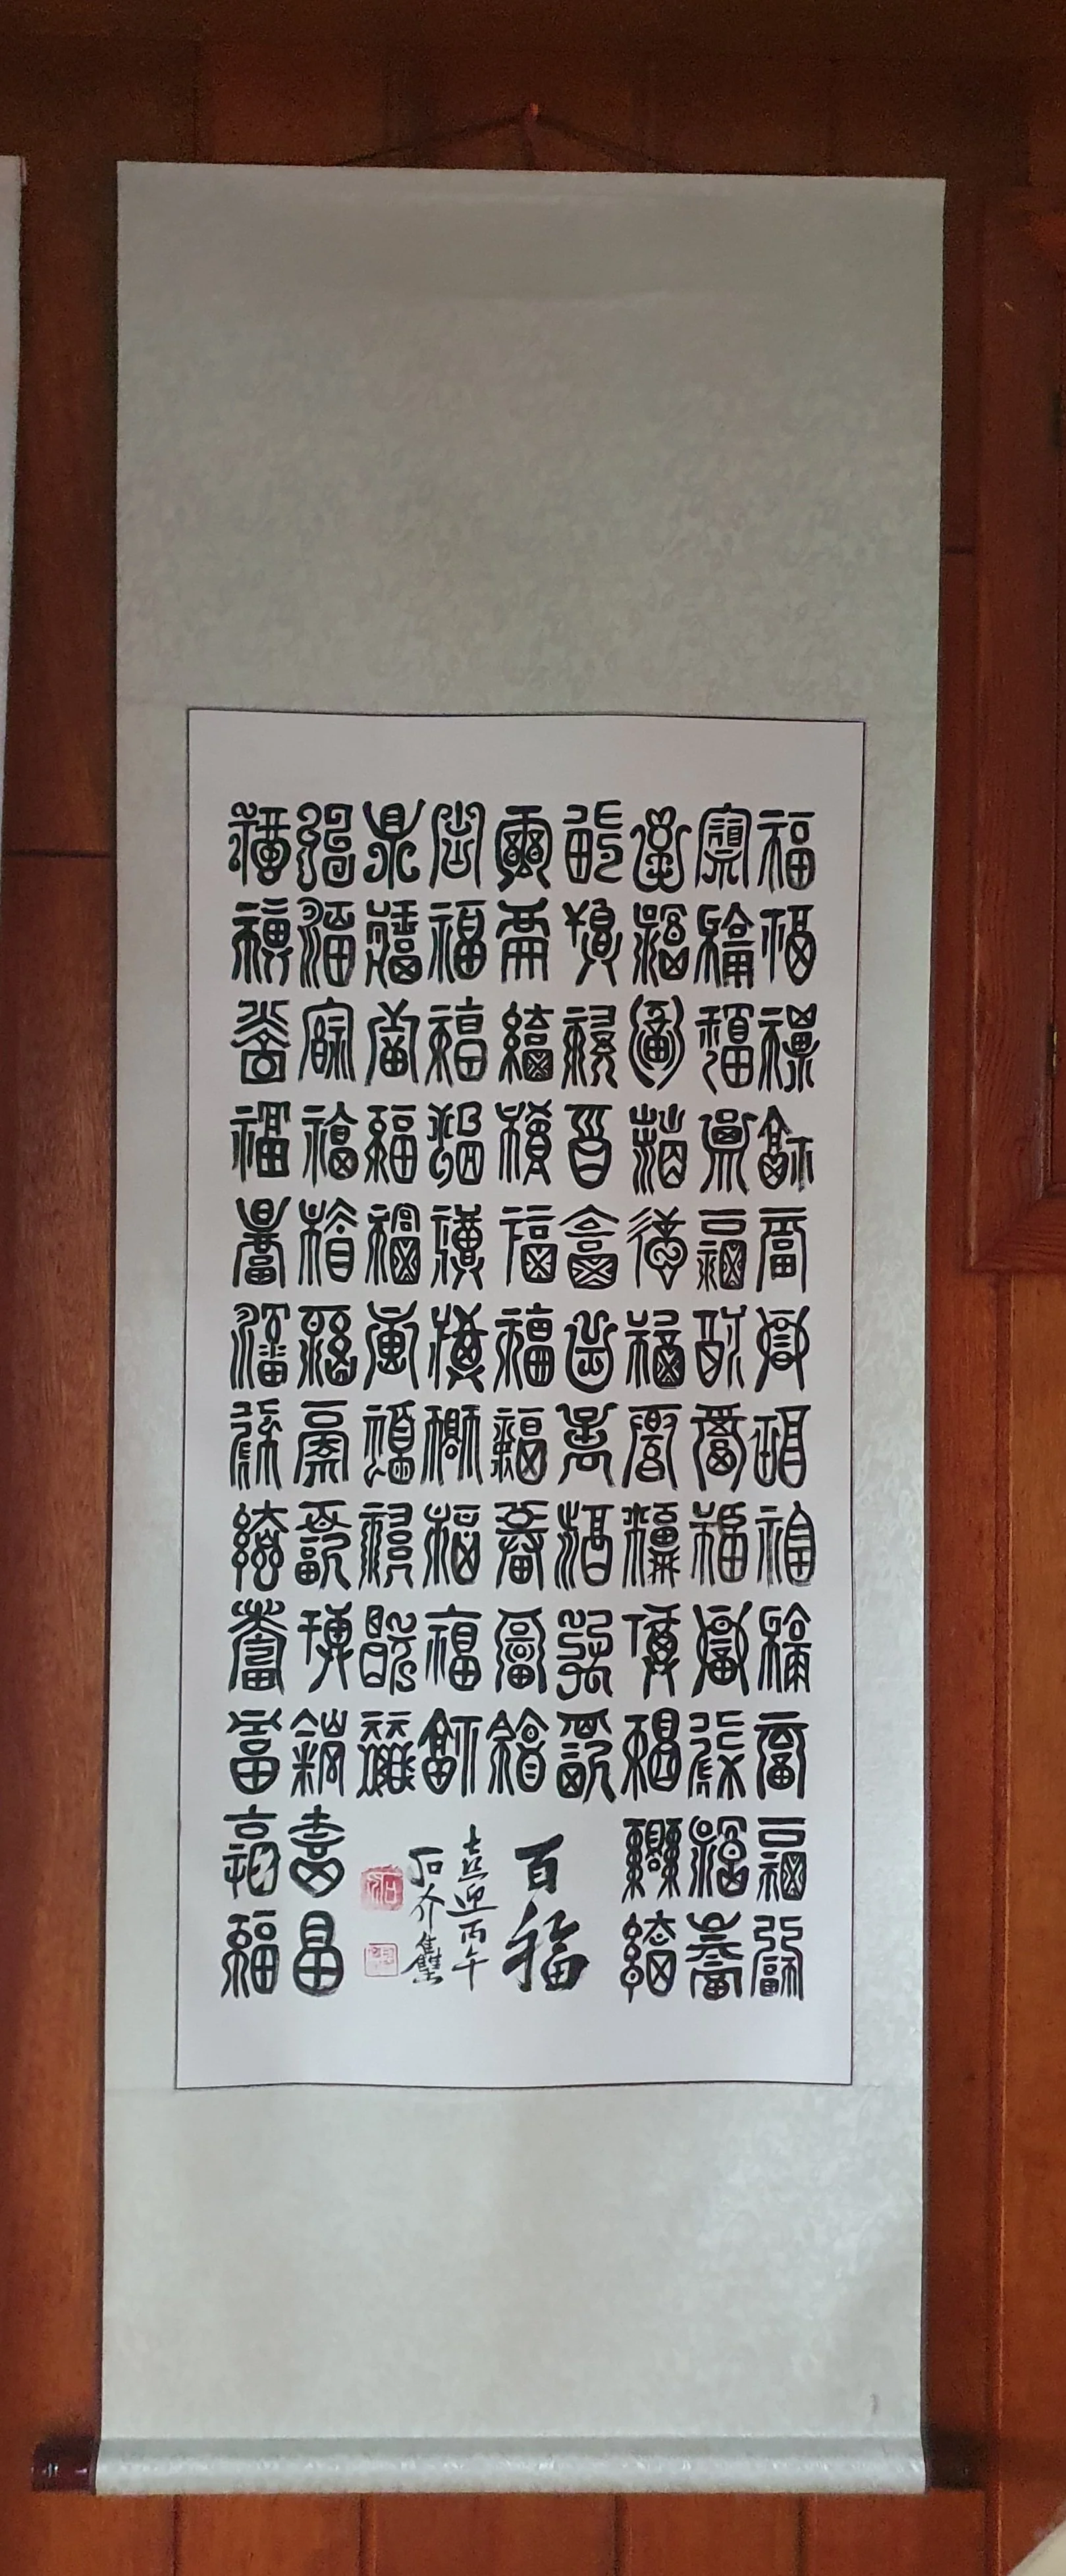 福福福福福福福福福福福福
福福福福福福福福福福福福
福福福福福福福福福福福福
福福福福福福福福福福
福福福福福福福福福福
福福福福福福福福福福
福福福福福福福福福福
福福福福福福福福福福福福
福福福福福福福福福福福福
百福
喜迎丙午
石介